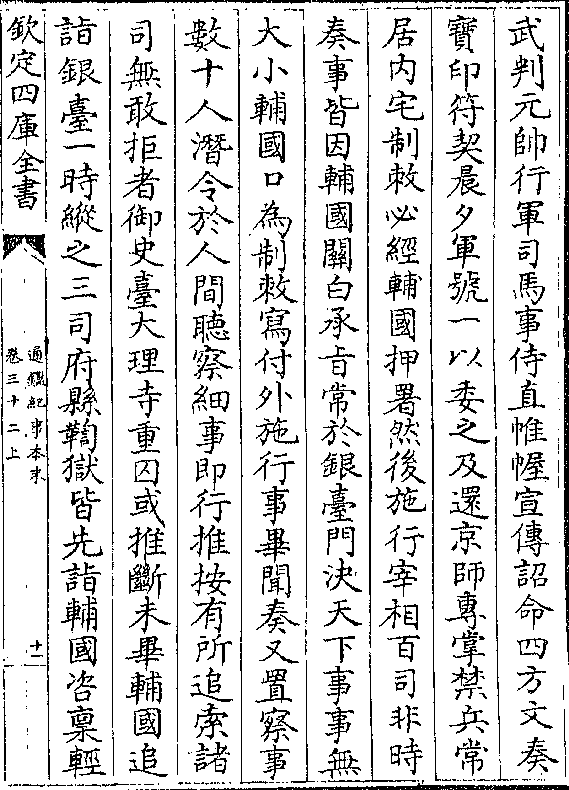 武判元帥行軍司馬事侍直帷幄宣傳詔命四方文奏
寶印符契晨夕軍號一以委之及還京師專掌禁兵常
居内宅制敕必經輔國押署然後施行宰相百司非時
奏事皆因輔國關白承旨常於銀臺門決天下事事無
大小輔國口為制敕寫付外施行事畢聞奏又置察事
數十人潛令於人間聽察細事即行推按有所追索諸
司無敢拒者御史臺大理寺重囚或推斷未畢輔國追
詣銀臺一時縱之三司府縣鞫獄皆先詣輔國咨稟輕
欽定四庫全書
通鑑紀事本末
卷三十二上
十一